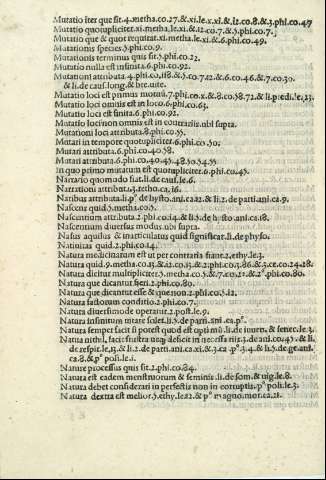 Mutatio iter que sit.4.metha.co.27.&.xi.le.x.xi.&.12.co.8.&.3.phi.co.47
Mutatio quotupliciter.xi.metha.le.xi.&.12.co.7.&.5.phi.co.7.
Mutatio que & quot requirat.xi.metha.le.xi.&.6.phi.co.49.
Mutationis species.5.phi.co.9.
Mutationis terminus quis sit.5.phi.co.22.
Mutatio nulla est infinita.6.phi.co.92.
Mutationi attributa.4.phi.co.118.&.5.co.7.12.&.6.co.46.&.7.co.30.
& li.de caus.long.& bre.uite.
Mutatio loci est primus motus.7.phi.co.x.&.8.co.58.72.& li.predi.le.23.
Mutatio loci omnis est in loco.6.phi.co.63.
Mutatio loci est finita.6.phi.co.92.
Mutatio loci non omnis est in contrariis ubi supra.
Mutationi loci attributa.8.phi.co.55.
Mutari in tempore quotupliciter.6.phi.co.50.
Mutari attributa.6.phi.co.40.58.
Mutari attributa.6.phi.co.40.45.48.50.54.55
In quo primo mutatum est quotupliciter.6.phi.co.45.
Narratio quomodo fiat.li.de caus.le.6.
Narrationi attributa.3.retho.ca.16.
Naribus attributa.li.pº de hysto.ani.ca.12.& li.2.de parti.ani.ca.9.
Nascens quid.5.metha.co.5.
Nascentium attributa.2.phi.co.14.& li.5.de hysto.ani.ca.18.
Nascentium diuersus modus ubi supra.
Nasus aquilus & inarticulatus quid significat.li.de physo.
Natiuitas quid.2.phi.co.14.
Natura medicinarum est ut per contraria fiant.2.ethy.le.3.
Natura quid.9.metha.co.13.&.12.co.13.&.2.phi.co.3.86.&.3.ce.co.24.28.
Natura dicitur multipliciter.5.metha.co.5.&.7.co.21.&.2º.phi.co.80.
Natura que dicantur fieri.2.phi.co.80.
Natura que dicantur esse & que non.2.phi.co.5.12.
Natura factorum conditio.2.phi.co.7.
Natura diuersimo de operatur.2.post.le.9.
Natura infinitum uitare solet.li.5.de parti.ani.ca.pº.
Natura semper facit si potest quod est optimum.li.de iuuen.& senec.le.3.
Natura nihil facit frustra neque deficit in necessariis.3.de ani.co.45.& li.
de respit.le.13.& li.2.de parti.ani.ca.xi.&.3.ca.pº.3.4.& li.5.de ge.ani.
ca.8.& pº poli.le.1.
Nature processus quis sit.2.phi.co.84.
Natura est eadem menstruorum & seminis.li.de som.& uig.le.8.
Natura debet considerari in perfectis non in corruptis.pº poli.le.3.
Natura dextra est melior.5.ethy.le.12.& pº magno.mor.ca.21.